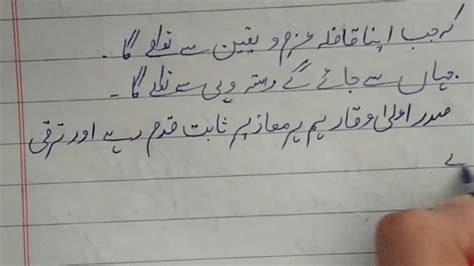 کہ جب اپنا قافلہ عزم و یقین سے نکلے گا۔
جہاں سے چاہے گے رستہ وہی سے نکلے گا۔
صدر اعلیٰ وقار ہم ہر معاذ پر ثابت قدم رہے اور ترقی